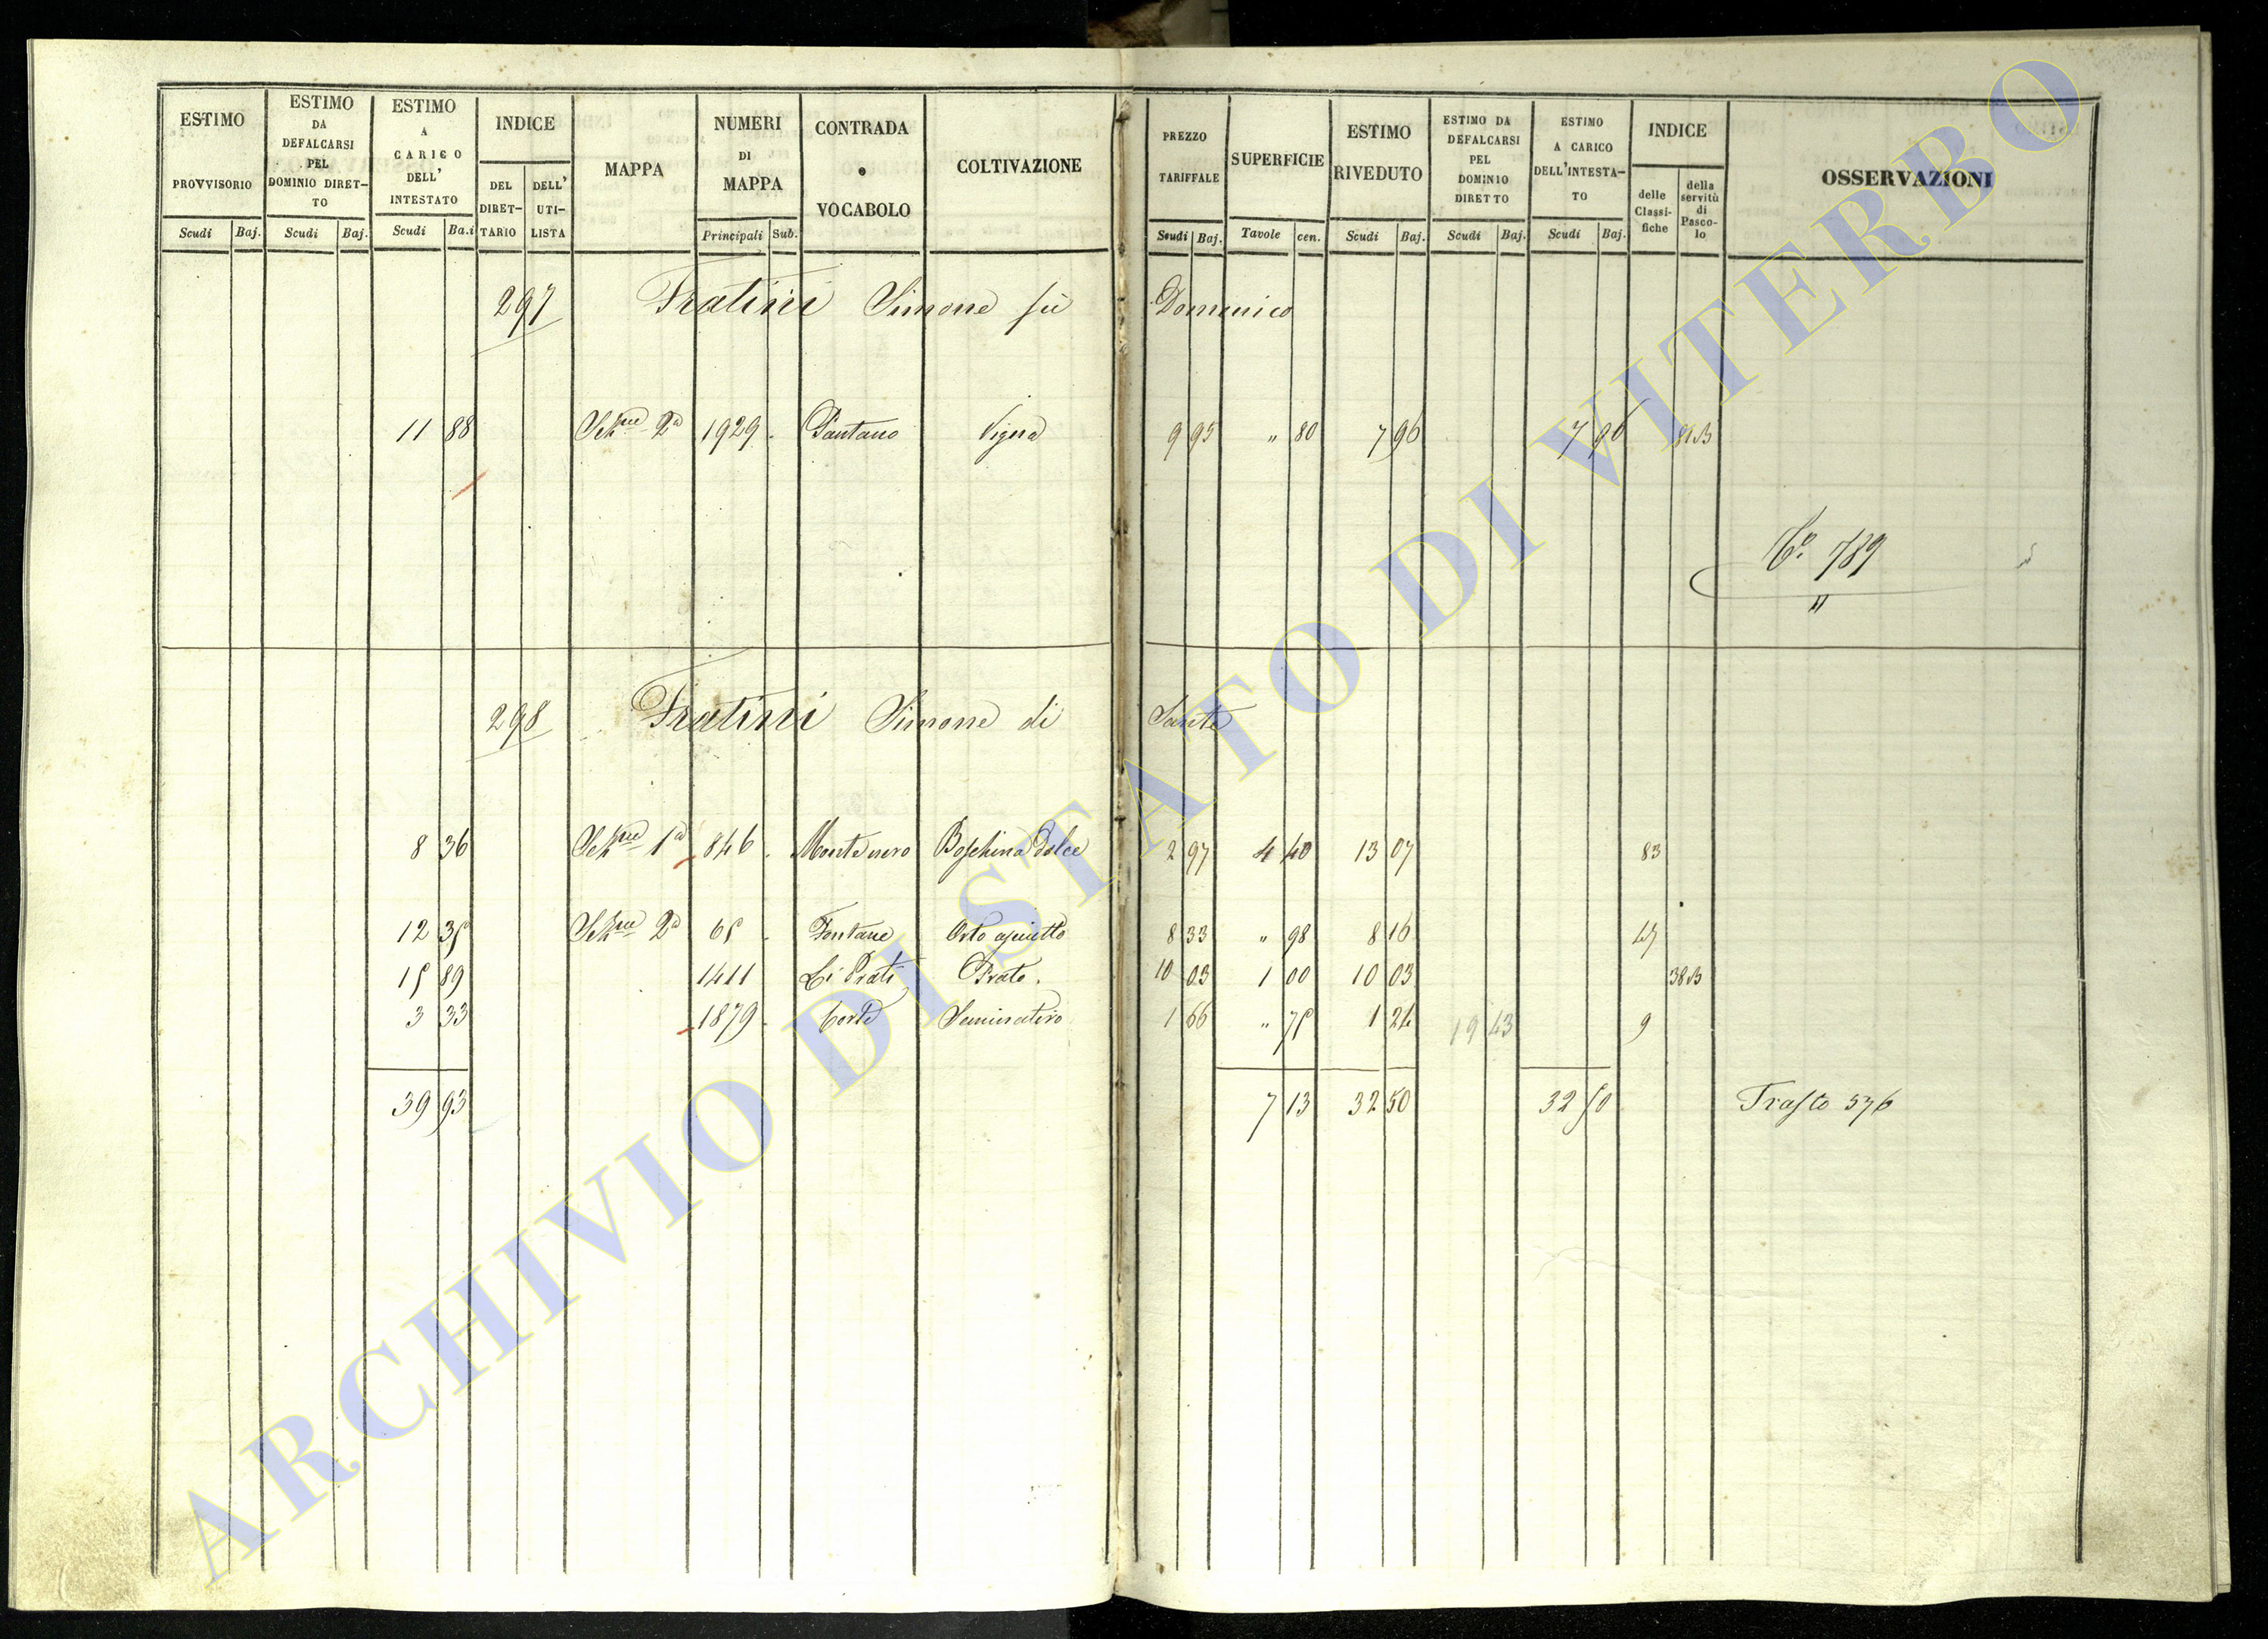 ESTIMO PROVVISORIO
ESTIMO DA DEFALCARSI PEL DOMINIO DIRET-TO
ESTIMO A CARICO DELL' INTESTATO
INDICE
DEL DIRET-TARIO
DELL' UTI-LISTA
MAPPA
NUMERI DI MAPPA
CONTRADA o VOCABOLO
COLTIVAZIONE
PREZZO TARIFFALE
SUPERFICIE
ESTIMO RIVEDUTO
ESTIMO DA DEFALCARSI PEL DOMINIO DIRETTO
ESTIMO A CARICO DELL'INTESTA-TO
INDICE
delle Classi-fiche
della servitù di Pasco-lo
OSSERVAZIONI
Scudi Baj. Scudi Baj. Scudi Ba.i Principali Sub. Scudi Baj. Tavole cen. Scudi Baj. Scudi Baj. Scudi Baj.
297 Fratini Simone fù Domenico
11 88 Sez.ne 2a 1929 Pantano Vigna 9 95 " 80 7 96 7 96 81B
Co. 789
"
298 Fratini Simone di Sante
8 36 Sez.ne 1a 846 Montenero Boschina Dolce 2 97 4 40 13 07 83
12 35 Sez.ne 2a 65 Fontane Orto asciutto 8 33 " 98 8 16 47
15 89 1411 Li Prati Prato. 10 03 1 00 10 03 38B
3 33 1879 Corte Seminativo 1 66 " 75 1 24 19 43 9
39 93 7 13 32 50 32 50 Trasto 576
ARCHIVIO DI STATO DI VITERBO